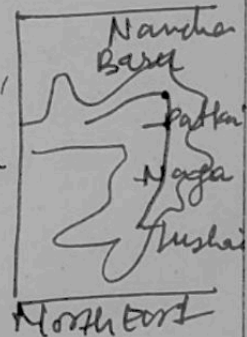 Namcha
Patkai
Naga
Lushai
North East